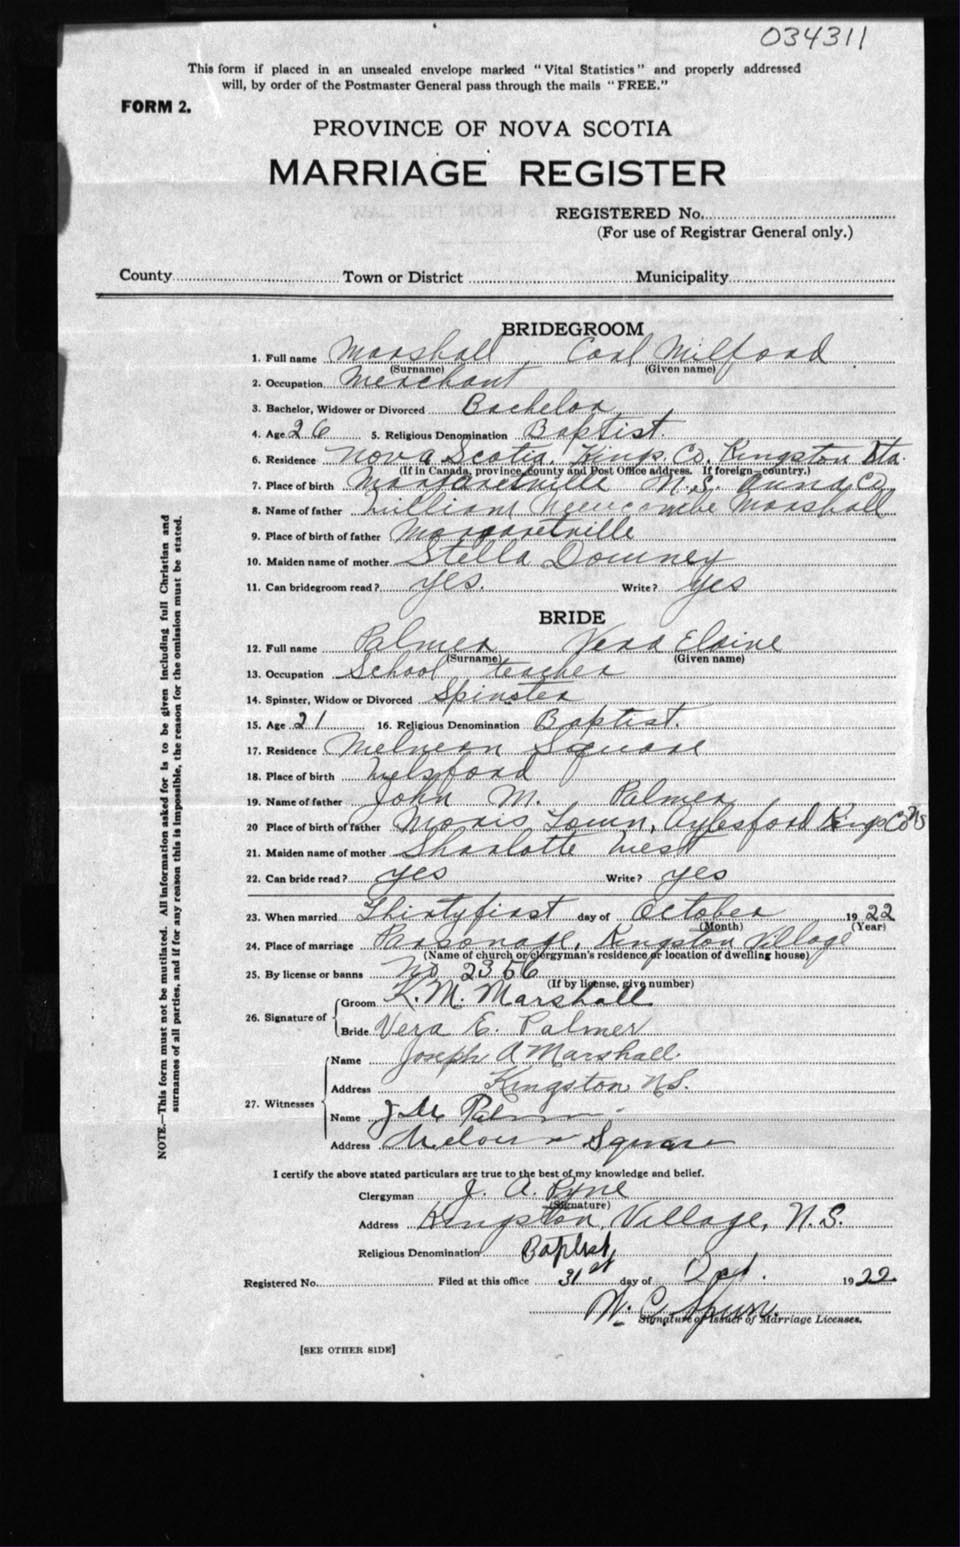 034311
This form if placed in an unsealed envelope marked "Vital Statistics" and properly addressed
will, by order of the Postmaster General pass through the mails "FREE."
FORM 2.
PROVINCE OF NOVA SCOTIA
MARRIAGE REGISTER
REGISTERED No.
(For use of Registrar General only.)
County Town or District Municipality
BRIDEGROOM
1. Full name Marshall, Carl Milford
(Surname) (Given name)
2. Occupation Merchant
3. Bachelor, Widower or Divorced Bachelor
4. Age 26 5. Religious Denomination Baptist.
6. Residence Nova Scotia, Kings Co, Kingston Sta.
(If in Canada, province, county and Post Office address. If foreign—country.)
7. Place of birth Margaretville N.S. Anna Co
8. Name of father William Newcombe Marshall
9. Place of birth of father Margaretville
10. Maiden name of mother Stella Downey
11. Can bridegroom read? yes. Write? yes
BRIDE
12. Full name Palmer Vera Elaine
(Surname) (Given name)
13. Occupation School teacher
14. Spinster, Widow or Divorced Spinster
15. Age 21 16. Religious Denomination Baptist.
17. Residence Melvern Square
18. Place of birth
19. Name of father John M. Palmer
20 Place of birth of father Morris Town, Aylesford Kings Co NS
21. Maiden name of mother Sharlotte West
22. Can bride read? yes Write? yes
23. When married Thirtyfirst day of October 1922
(Month) (Year)
24. Place of marriage Parsonage, Kingston Village
(Name of church or clergyman's residence or location of dwelling house)
25. By license or banns No 2356
(If by license, give number)
26. Signature of
Groom K. M. Marshall
Bride Vera E. Palmer
27. Witnesses
Name Joseph A Marshall
Address Kingston N.S.
Name J M Palmer
Address Melvern Square
I certify the above stated particulars are true to the best of my knowledge and belief.
Clergyman J. A.
(Signature)
Address Kingston, Village, N.S.
Religious Denomination Baptist
Registered No. Filed at this office 31st day of Oct. 1922
W. C.
Signature of Issuer of Marriage Licenses.
[SEE OTHER SIDE]
NOTE.—This form must not be mutilated. All information asked for is to be given including full Christian and
surnames of all parties, and if for any reason this is impossible, the reason for the omission must be stated.